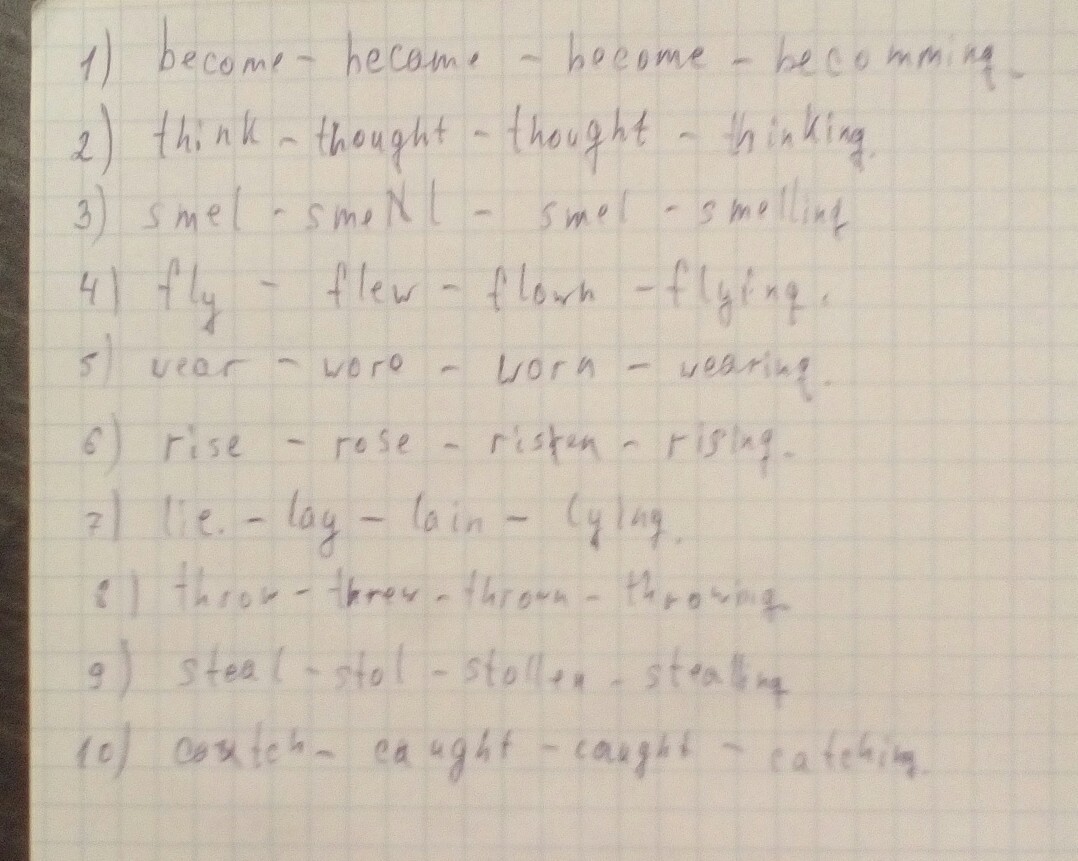 1) become - became - become - becomming.
2) think - thought - thought - thinking.
3) smel - smell - smel - smelling
4) fly - flew - flown - flying.
5) wear - wore - worn - wearing.
6) rise - rose - risen - rising.
7) lie. - lay - lain - lying.
8) throw - threw - thrown - throwing
9) steal - stol - stollen - stealing
10) catch - caught - caught - catching.